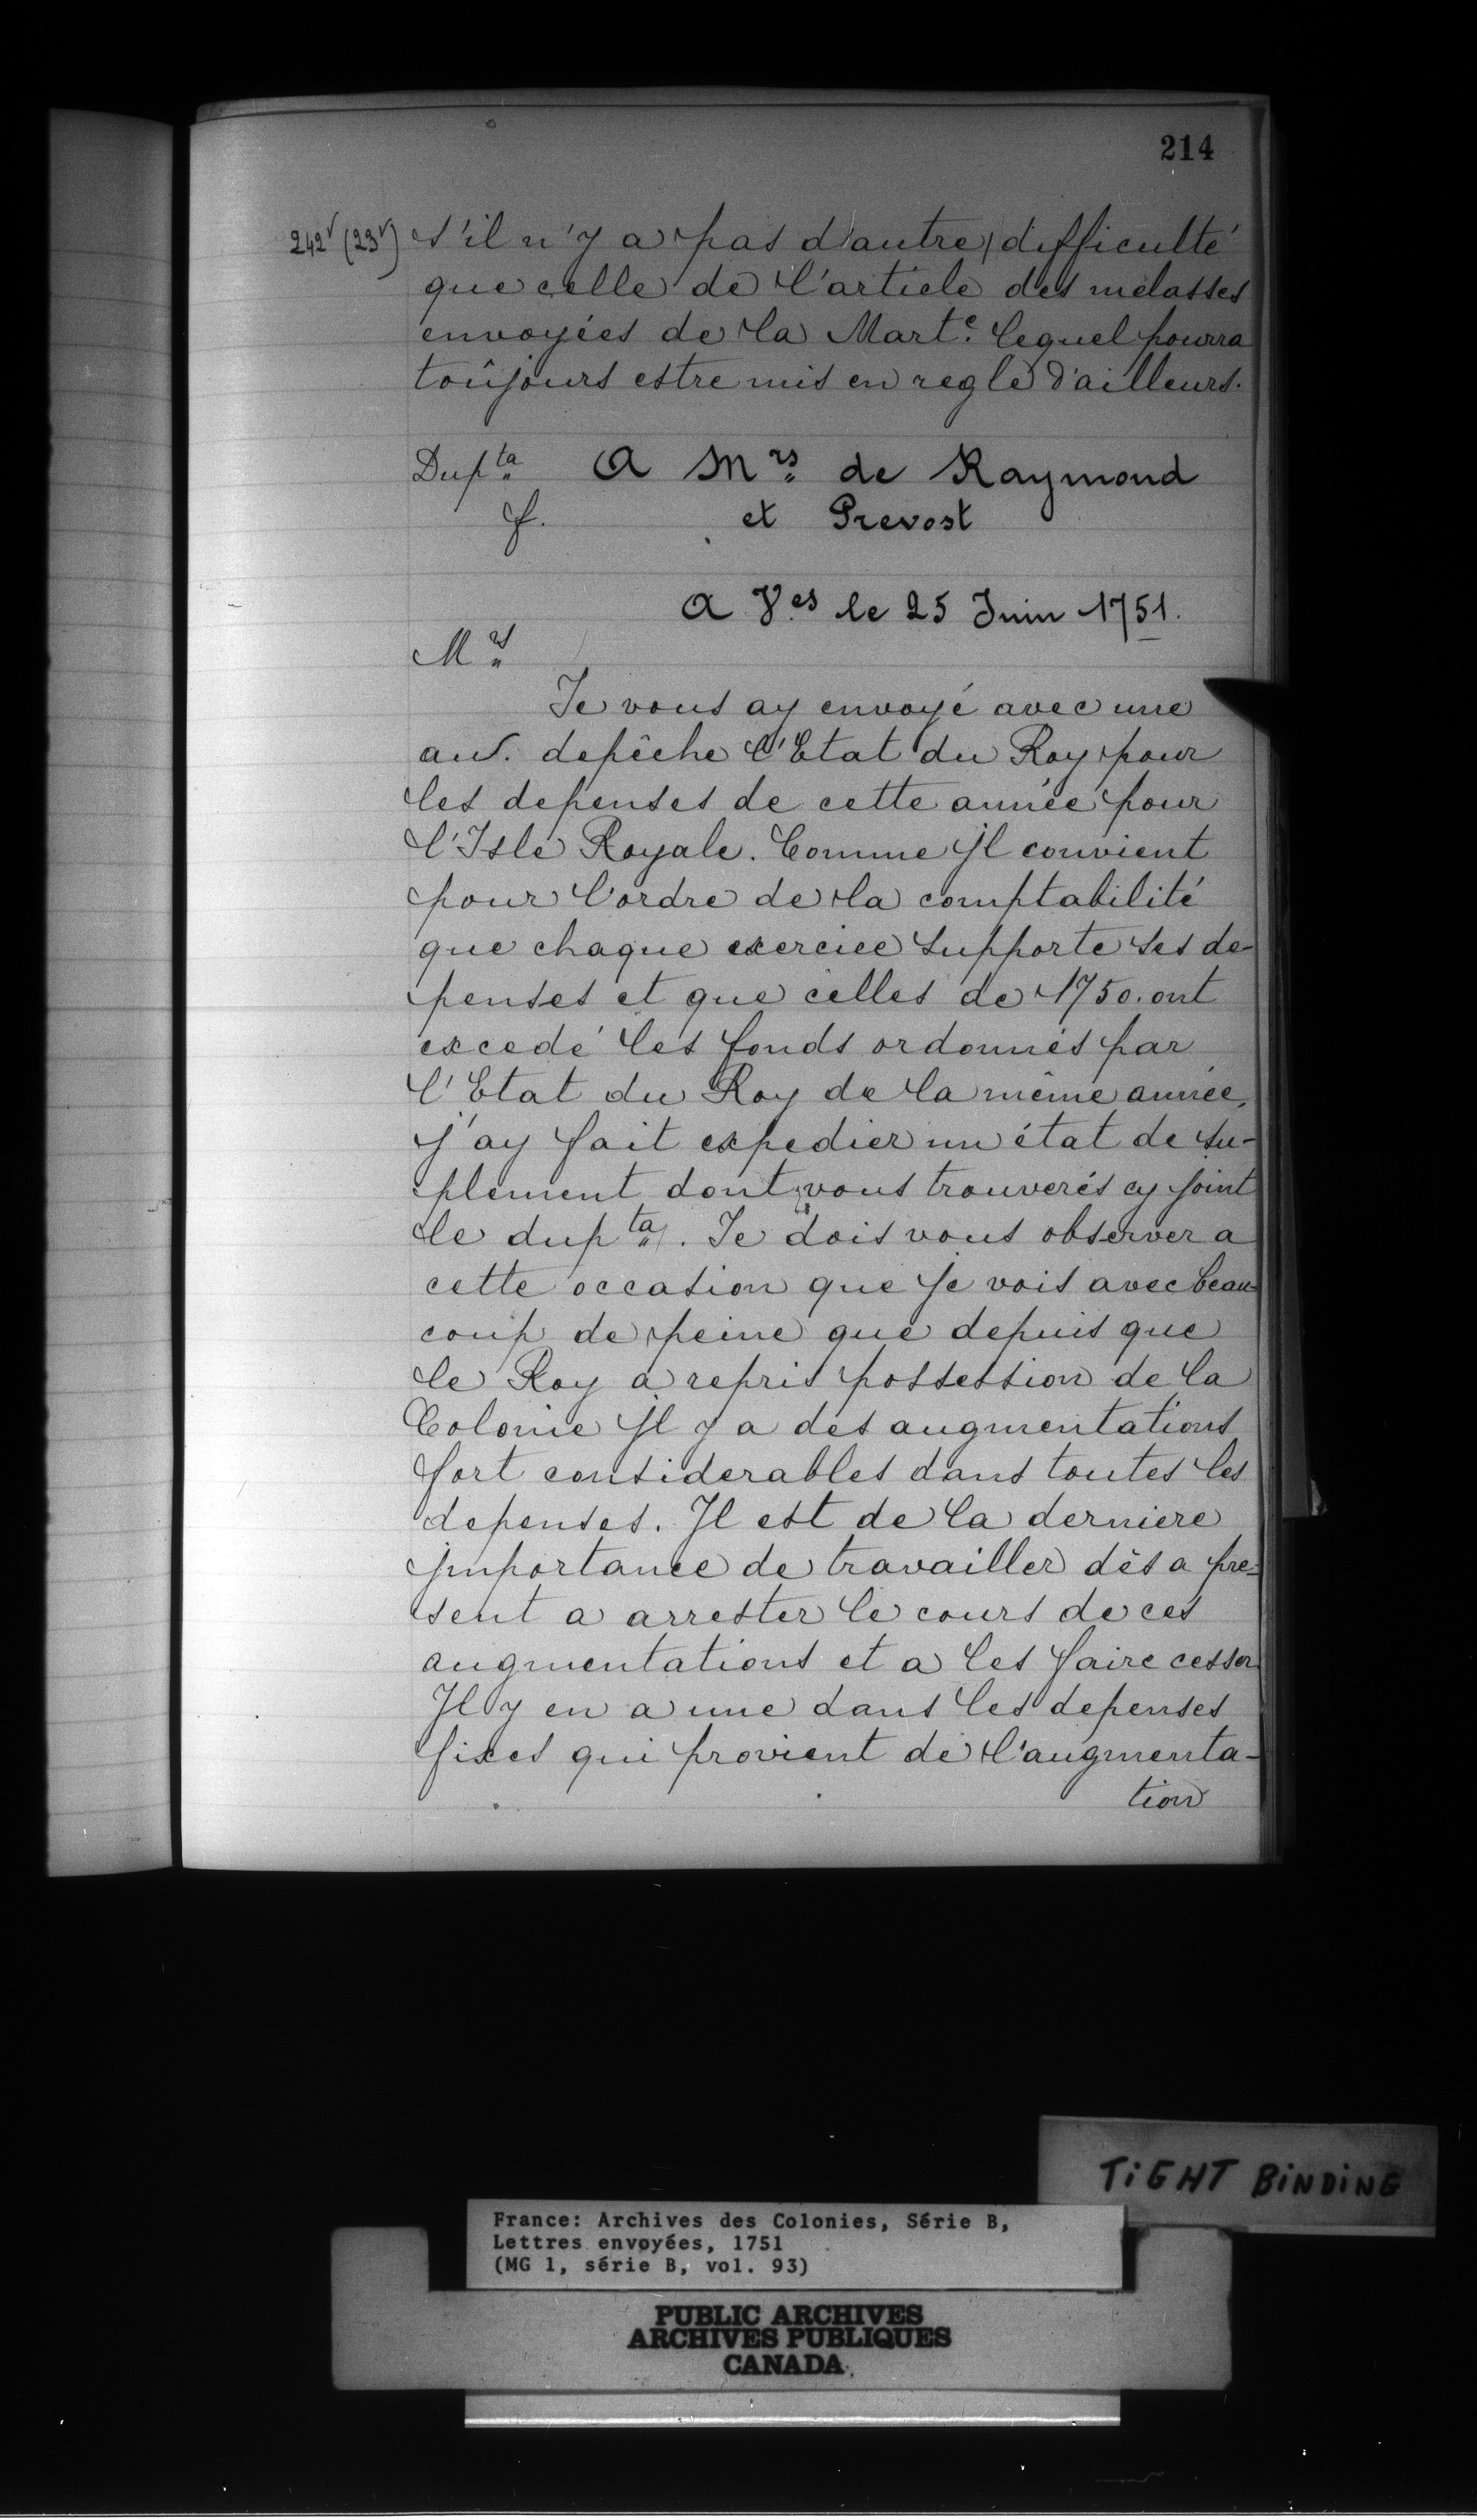 214
242v (23v) s'il n'y a pas d'autre difficulté
que celle de l'article des mélasses
envoyées de la Mart.e lequel pourra
toûjours estre mis en regle d'ailleurs.
Dup.ta A M.rs de Raymond
f. et Prevost
A V.es le 25 Juin 1751.
M.rs
Je vous ay envoyé avec une
au. depêche l'Etat du Roy pour
les depenses de cette année pour
l'Isle Royale. Comme Jl convient
pour l'ordre de la comptabilité
que chaque exercice supporte ses de-
penses et que celles de 1750. ont
excedé les fonds ordonnés par
l'Etat du Roy de la même année,
j'ay fait expedier un état de su-
plement dont vous trouverés cy joint
le dup.ta. Je dois vous observer a
cette occasion que je vois avec beau-
coup de peine que depuis que
le Roy a repris possession de la
Colonie Jl y a des augmentations
fort considerables dans toutes les
depenses. Jl est de la derniere
jmportance de travailler dès a pre-
sent a arrester le cours de ces
augmentations et a les faire cesser
Jl y en a une dans les depenses
fixes qui provient de l'augmenta-
tion
TiGHT BiNDiNG
France: Archives des Colonies, Série B,
Lettres envoyées, 1751
(MG 1, série B, vol. 93)
PUBLIC ARCHIVES
ARCHIVES PUBLIQUES
CANADA